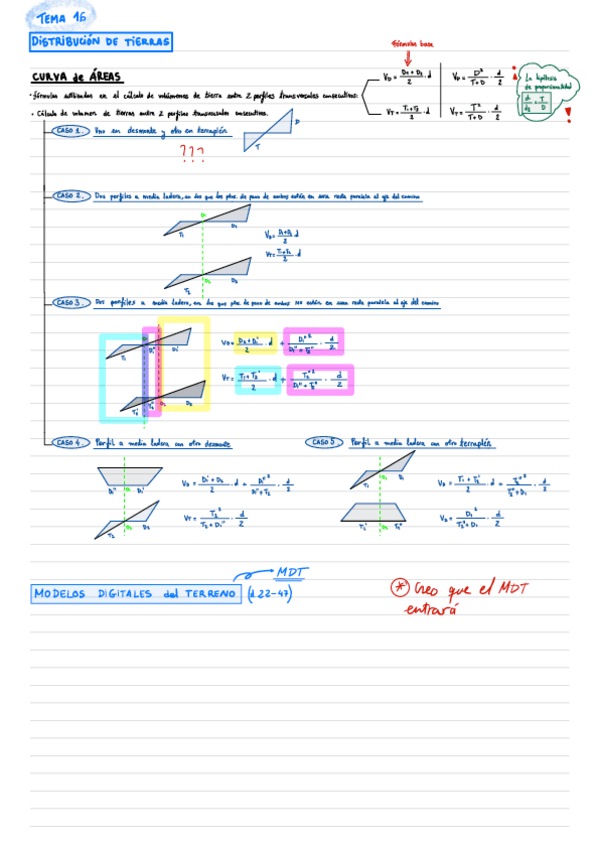 TEMA 16
DISTRIBUCIÓN DE TIERRAS
Fórmulas base
CURVA de ÁREAS
V_D = (D₁ + D₂)/2 · d
V_D = D²/(T+D) · d/2
La hipótesis de proporcionalidad
· Fórmulas utilizadas en el cálculo de volúmenes de tierra entre 2 perfiles transversales consecutivos:
V_T = (T₁ + T₂)/2 · d
V_T = T²/(T+D) · d/2
!
· Cálculo de volumen de tierras entre 2 perfiles transversales consecutivos.
CASO 1. Uno en desmonte y otro en terraplén
D
T
???
CASO 2. Dos perfiles a media ladera, en los que los ptos. de paso de ambos están en una recta paralela al eje del camino
T₁ D₁
V_D = (D₁ + D₂)/2 · d
V_T = (T₁ + T₂)/2 · d
T₂ D₂
CASO 3. Dos perfiles a media ladera, en los que ptos. de paso de ambos NO están en una recta paralela al eje del camino
T₁ D₁'' D₁'
V_D = (D₂ + D₁')/2 · d + D₁''²/(D₁'' + T₂'') · d/2
V_T = (T₁ + T₂')/2 · d + T₂''²/(D₁'' + T₂'') · d/2
T₂' T₂'' D₂
CASO 4. Perfil a media ladera con otro desmonte
D₁'' D₁'
V_D = (D₁' + D₂)/2 · d + D₁''²/(D₁'' + T₂) · d/2
V_T = T₂²/(T₂ + D₁'') · d/2
T₂ D₂
CASO 5. Perfil a media ladera con otro terraplén
T₁ D₁
V_T = (T₁ + T₂')/2 · d + T₂''²/(T₂'' + D₁) · d/2
V_D = D₁²/(T₂'' + D₁) · d/2
T₂' T₂''
MDT
MODELOS DIGITALES del TERRENO (d 22-47)
* Creo que el MDT
entrará